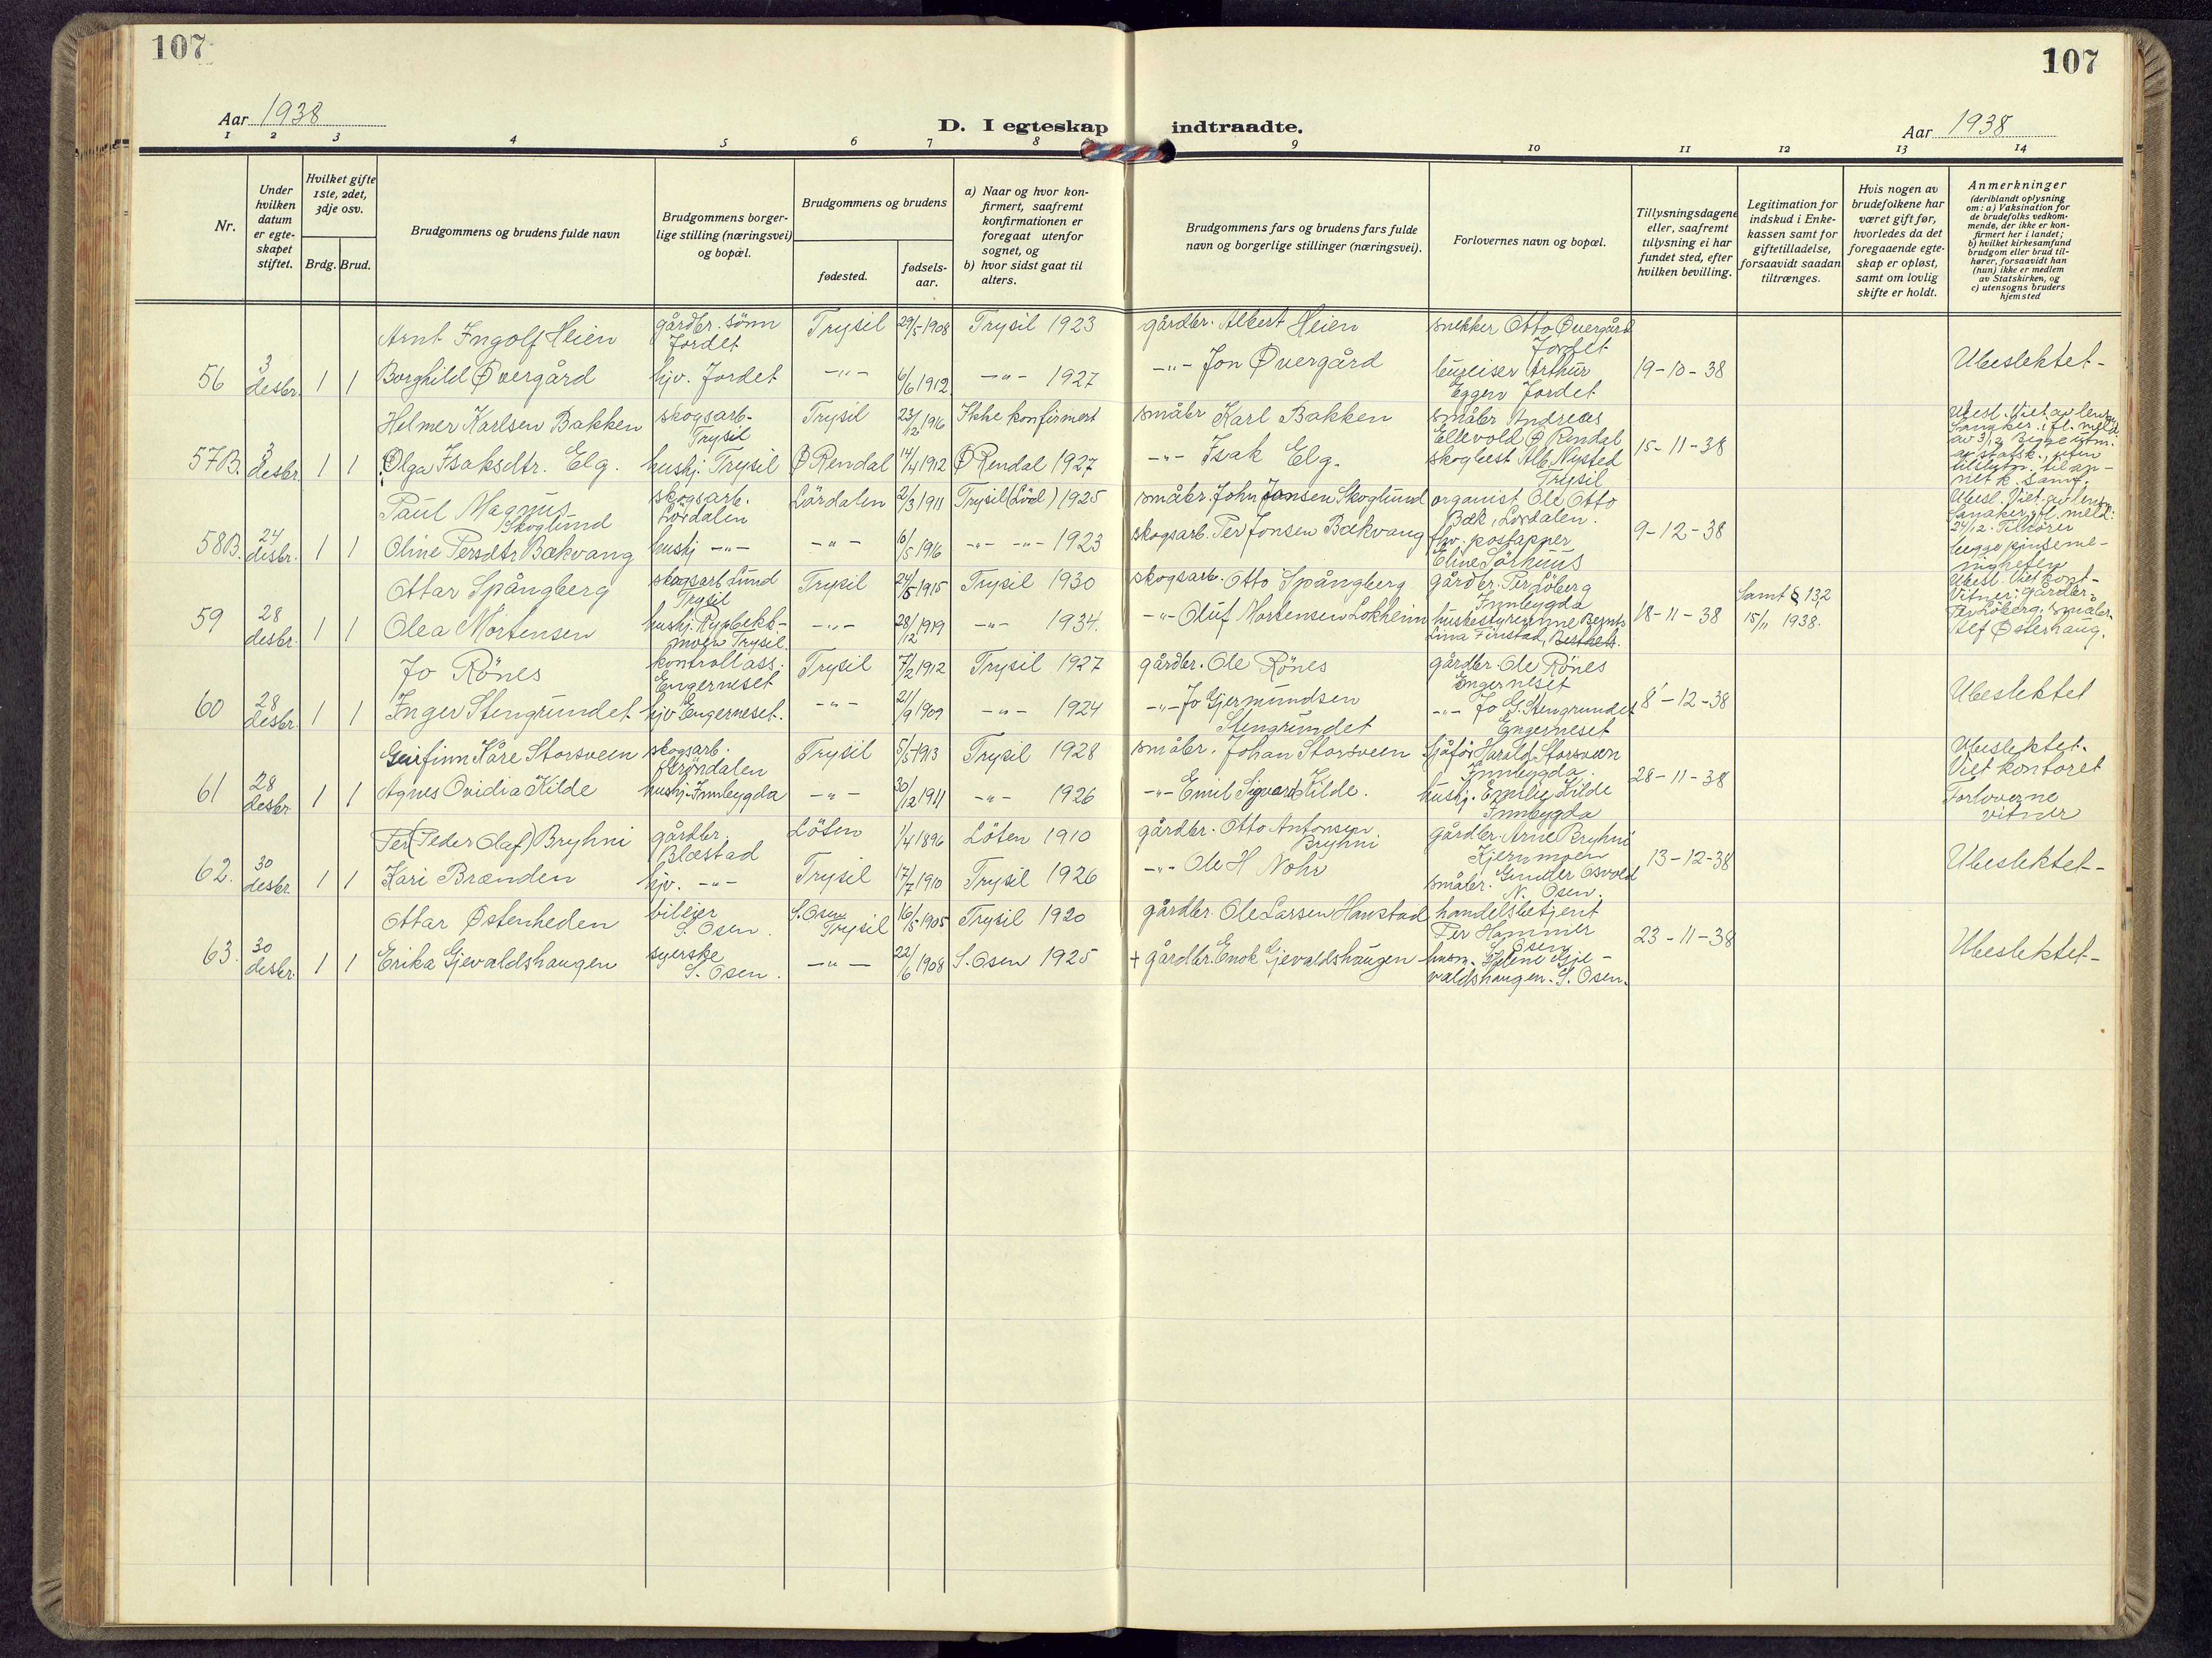 107
107
Aar 1938
D. I egteskap indtraadte.
Aar 1938
1 2 3 4 5 6 7 8 9 10 11 12 13 14
Nr.
Under hvilken datum er egteskapet stiftet.
Hvilket gifte 1ste, 2det, 3dje osv.
Brdg. Brud.
Brudgommens og brudens fulde navn
Brudgommens borgerlige stilling (næringsvei) og bopæl.
Brudgommens og brudens
fødested.
fødselsaar.
a) Naar og hvor konfirmert, saafremt konfirmationen er foregaat utenfor sognet, og
b) hvor sidst gaat til alters.
Brudgommens fars og brudens fars fulde navn og borgerlige stillinger (næringsvei).
Forlovernes navn og bopæl.
Tillysningsdagene eller, saafremt tillysning ei har fundet sted, efter hvilken bevilling.
Legitimation for indskud i Enkekassen samt for giftetilladelse, forsaavidt saadan tiltrænges.
Hvis nogen av brudefolkene har været gift før, hvorledes da det foregaaende egteskap er opløst, samt om lovlig skifte er holdt.
Anmerkninger
(deriblandt oplysning om: a) Vaksination for de brudefolks vedkommende, der ikke er konfirmert her i landet;
b) hvilket kirkesamfund brudgom eller brud tilhører, forsaavidt han (hun) ikke er medlem av Statskirken, og
c) utensogns bruders hjemsted
Arnt Ingolf Heien gårdbr. sönn Jordet Trysil 29/5-1908 Trysil 1923 gårdbr. Albert Heien snekker Otto Øvergård Jordet
56 3 desbr. 1 1 Borghild Øvergård hjv. Jordet -"- 6/6 1912 -"- 1927 -"- Jon Øvergård bureiser Arthur Eggen Jordet 19-10-38 Ubeslektet-
Helmer Karlsen Bakken skogsarb. Trysil Trysil 23/12 1916 Ikke konfirmert småbr Karl Bakken småbr Andreas Ellevold Ø Rendal
57B. 3 desbr. 1 1 Olga Isaksdtr. Elg. hushj. Trysil Ø Rendal 14/4 1912 Ø Rendal 1927 -"- Isak Elg. skogbest Alb. Nysted Trysil 15-11-38 Ubesl. Viet av lensm. ifl. meld av 3/12 Begge utm. av statsk., uten tilslutn. til annet k. samf.
Paul Magnus Skoglund skogsarb. Lördalen Lördalen 2/3 1911 Trysil (Löd) 1925 småbr. John Jansen Skoglund organist Ole Otto Bæk, Lördalen.
58B. 24 desbr. 1 1 Oline Persdtr Bækvang hushj -"- -"- 10/5 1916 -"- -"- 1923 skogsarb. Per Jonsen Bækvang fhv. postapper Eline Sörhuus 9-12-38 Ubesl. Viet av ifl. meld. 24/12. Tilhörer begge pinsemenigheten
Ottar Spångberg skogsarb Lund Trysil Trysil 24/5-1915 Trysil 1930 skogsarb. Otto Spångberg gårdbr. Per Löberg Innbygda
59 28 desbr. 1 1 Olea Mortensen hushj. moen Trysil. -"- 28/12 1919 -"- 1934. -"- Oluf Mortensen Lokheim husbestyrerinne Lina Finstad, 18-11-38 Samt § 13,2 15/11 1938. Ubesl. Viet kont- Vitner: gårdbr. Per Löberg, småbr. Alf Østerhaug.
Jo Rönes kontrollass. Engerneset Trysil 7/2 1912 Trysil 1927 gårdbr. Ole Rönes gårdbr. Ole Rönes Engerneset
60 28 desbr. 1 1 Inger Stengrundet hjv Engerneset. -"- 21/9 1909 -"- 1924 -"- Jo Gjermundsen Stengrundet -"- Jo G. Stengrundet Engerneset 8-12-38 Ubeslektet
Geirfinn Kåre Storsveen skogsarb. Gröndalen Trysil 5/5-1913 Trysil 1928 småbr. Johan Storsveen Sjåför Harald Storsveen Innbygda
61 28 desbr 1 1 Agnes Ovidia Kilde hushj. Innbygda -"- 30/12 1911 -"- 1926 -"- Emil Sigvard Kilde. hushj. Emilie Kilde Innbygda 28-11-38 Ubeslektet. Viet kontoret Forloverne vitner
Per (Peder Olaf) Bryhni gårdbr. Blæstad Löten 1/4 1896 Löten 1910 gårdbr. Otto Antonsen Bryhni gårdbr. Arne Bryhni Kjernmoen
62. 30 desbr 1 1 Kari Brænden hjv. -"- Trysil 17/7 1910 Trysil 1926 -"- Ole H Nohr småbr. Gunder Osvold N. Osen. 13-12-38 Ubeslektet-
Ottar Østenheden bileier S. Osen. S. Osen Trysil 16/5-1905 Trysil 1920 gårdbr. Ole Larsen Haustad handelsbetjent Per Hammer S. Osen
63. 30 desbr. 1 1 Erika Gjevaldshaugen syerske S. Osen. -"- 22/6 1908 S. Osen 1925 + gårdbr. Enok Gjevaldshaugen husm. Helene Gjevaldshaugen. S. Osen. 23-11-38 Ubeslektet-